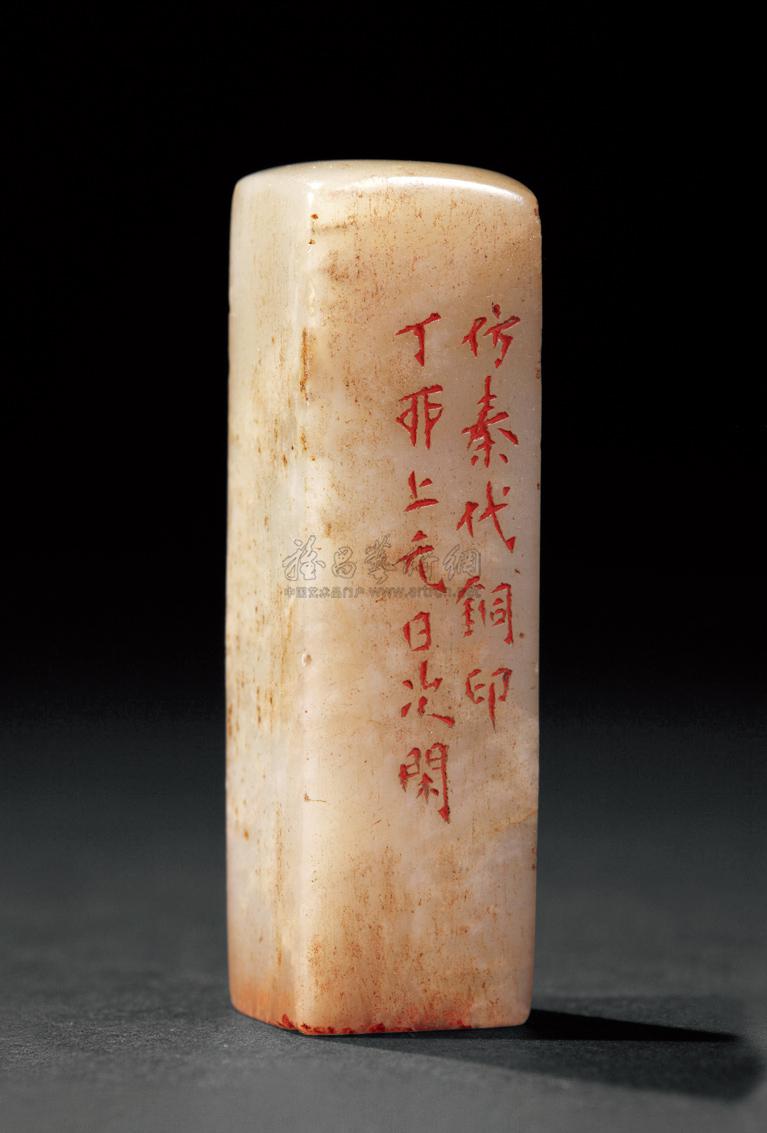 仿秦代銅印
丁卯上元日次閑
雅昌藝術網
中国艺术品门户 www.artron.net